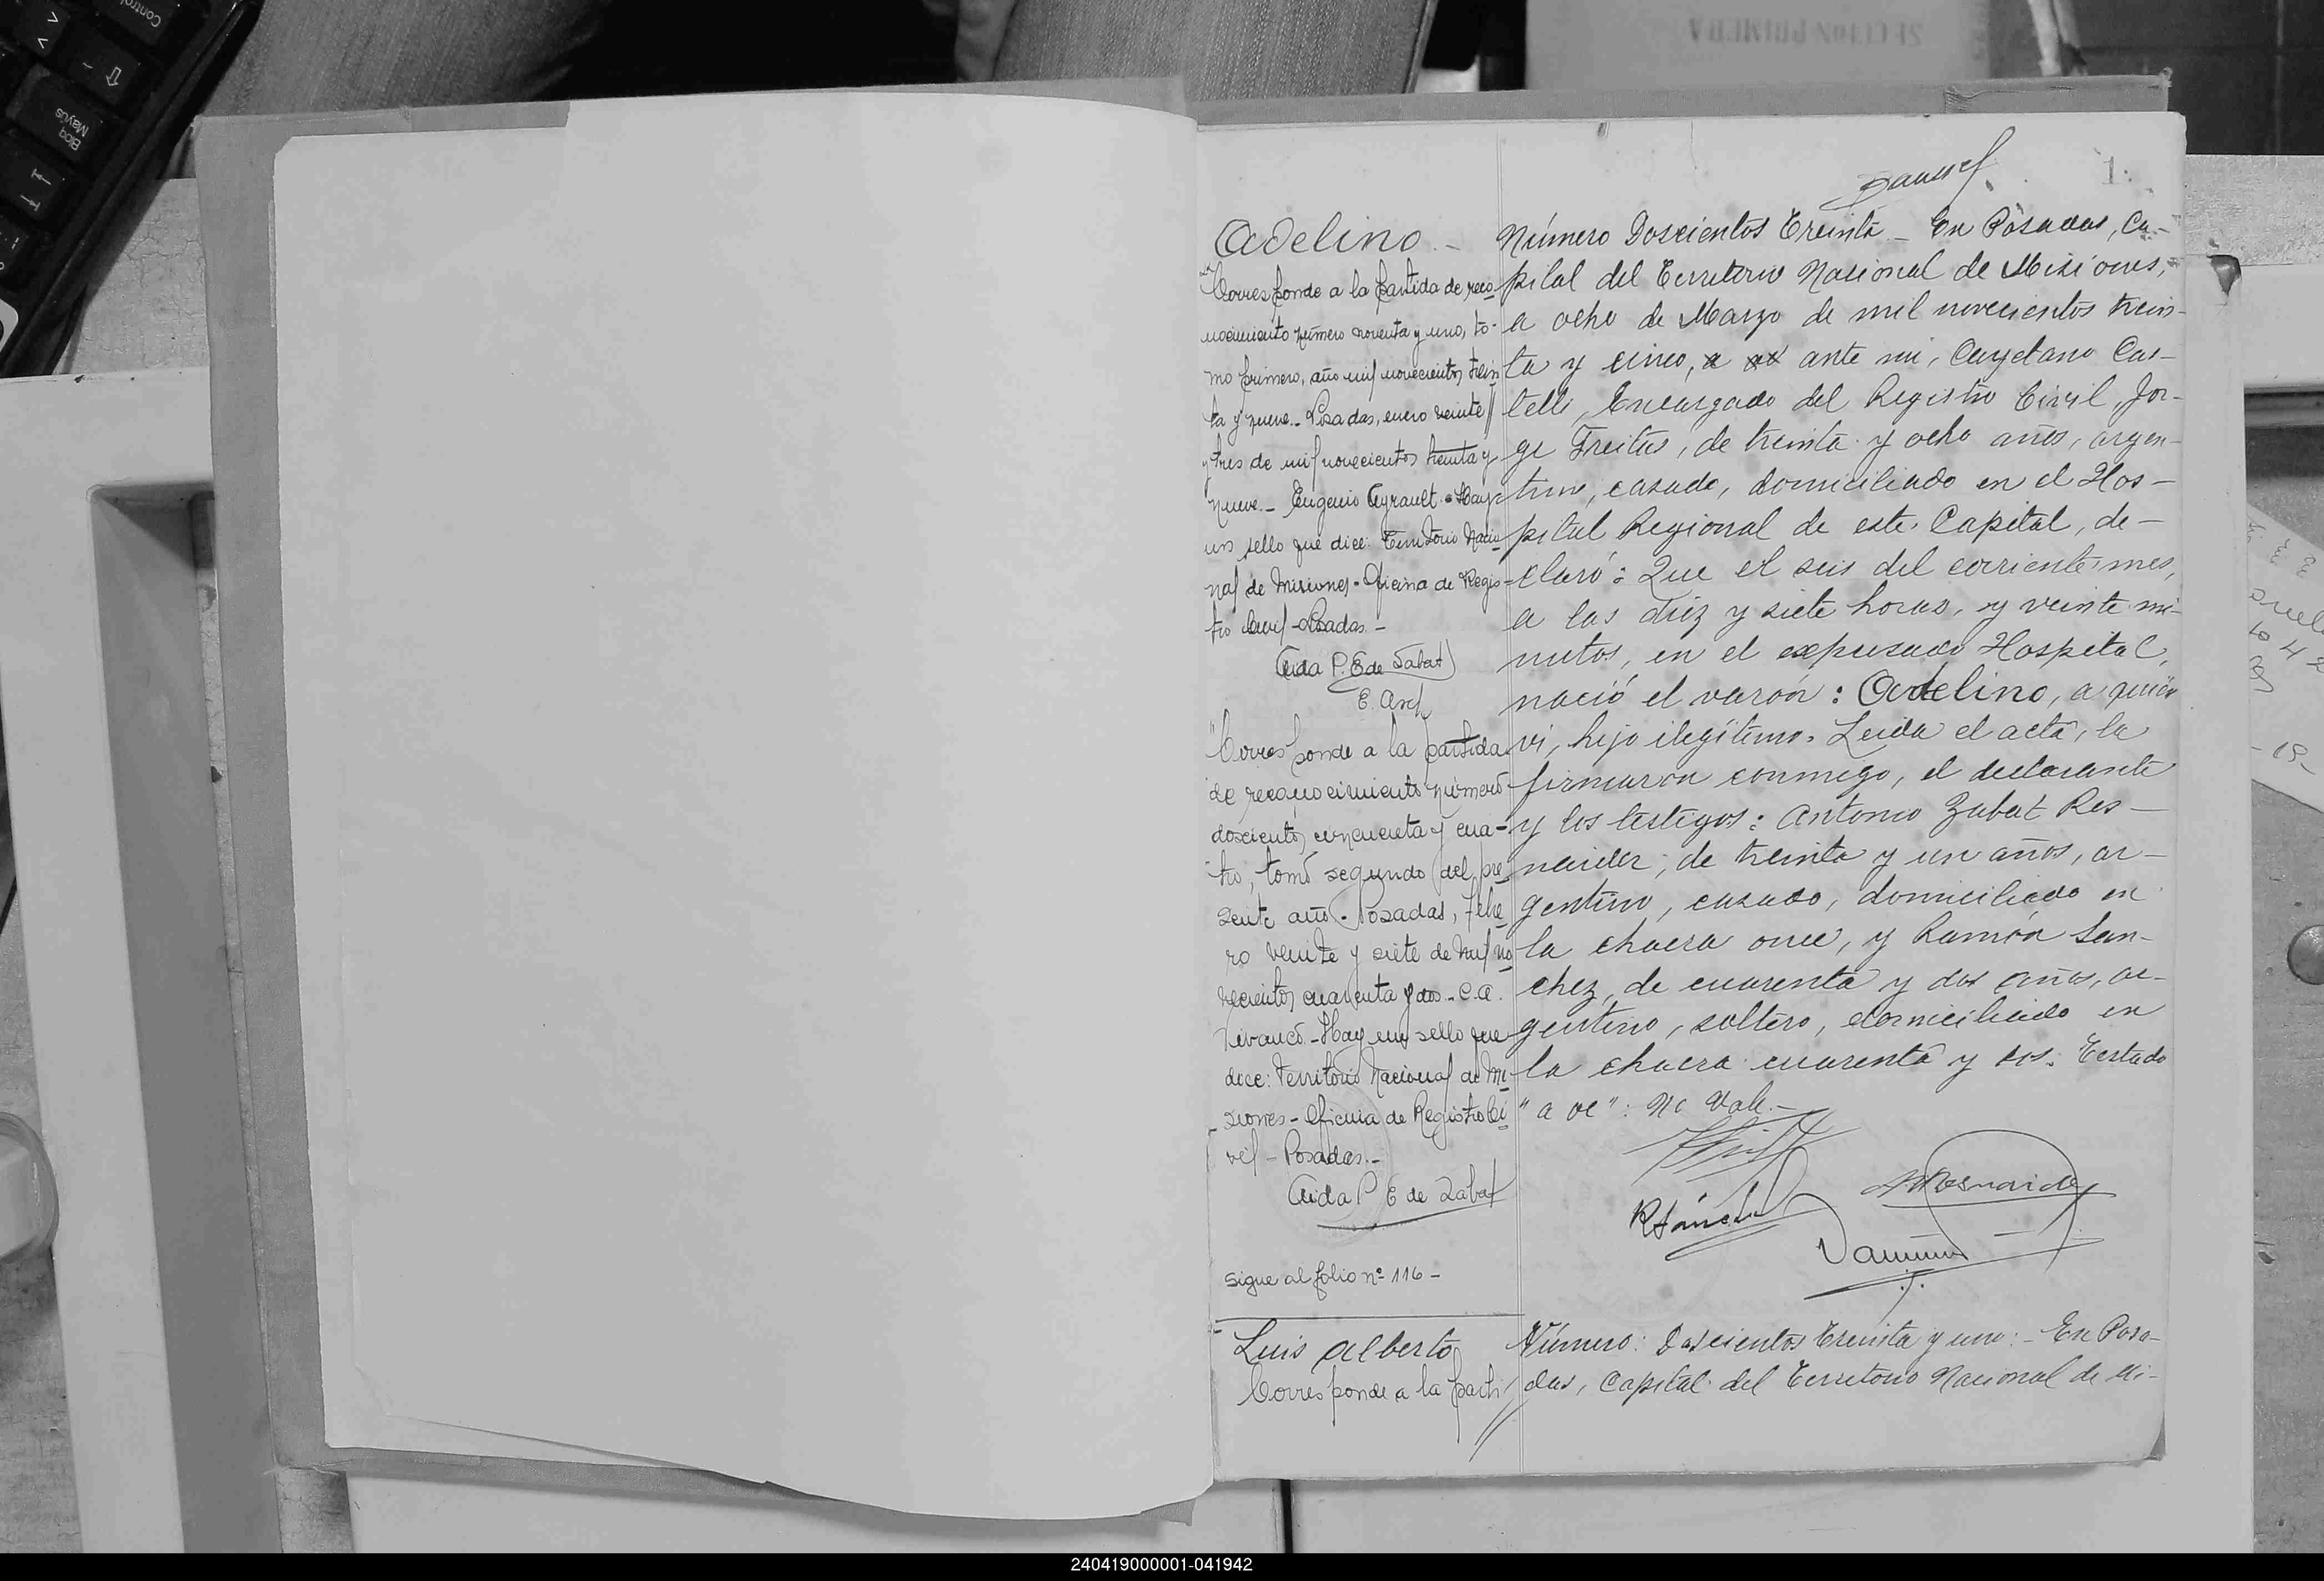 1
Adelino.-
Corresponde a la partida de reco-
nocimiento número noventa y uno, to-
mo primero, año mil novecientos trein
ta y nueve.- Posadas, enero veinte
y tres de mil novecientos treinta y
nueve.- Eugenio Ayrault - Hay
un sello que dice: Territorio Nacio
nal de Misiones - Oficina de Regis-
tro Civil - Posadas -
Aida P. E de Zabat
E. Arch
"Corresponde a la partida
de reconocimiento número
doscientos cincuenta y cua-
tro, tomo segundo del pre
sente año. Posadas, Febre
ro veinte y siete de mil no
vecientos cuarenta y dos.- C.A.
Hay un sello que
dice: Territorio Nacional de Mi
siones - Oficina de Registro Ci
vil - Posadas.-
Aida P E de Zabat
Sigue al folio nº 116 -
Número Doscientos Treinta - En Posadas, Ca-
pital del Territorio Nacional de Misiones,
a ocho de Marzo de mil novecientos trein-
ta y cinco, ante mi, Cayetano Cas-
telli, Encargado del Registro Civil, Jor-
ge Freitas, de treinta y ocho años, argen-
tino, casado, domiciliado en el Hos-
pital Regional de esta Capital, de-
claró: Que el seis del corriente mes,
a las diez y siete horas, y veinte mi-
nutos, en el expresado Hospital,
nació el varón: Adelino, a quien
vi, hijo ilegítimo. Leida el acta, la
firmaron conmigo, el declarante
y los testigos: Antonio Zubat Res-
naider, de treinta y un años, ar-
gentino, casado, domiciliado en
la chacra once, y Ramón San-
chez, de cuarenta y dos años, ar-
gentino, soltero, domiciliado en
la chacra cuarenta y dos. Testado
"a oc": No Vale.-
RSánchez
Luis Alberto
Corresponde a la parti
Número: Doscientos Treinta y uno:- En Posa-
das, Capital del Territorio Nacional de Mi-
SECCION PRIMERA
Control
Bloq
Mayús
240419000001-041942